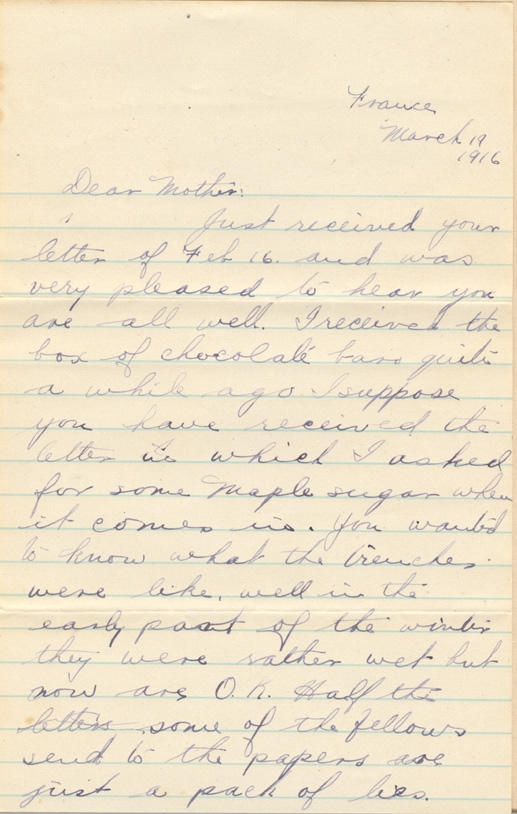 France
March 19
1916
Dear Mother:
Just received your
letter of Feb 16. and was
very pleased to hear you
are all well. I received the
box of chocolate bars quite
a while ago. I suppose
you have received the
letter in which I asked
for some Maple sugar when
it comes in. You wanted
to know what the trenches
were like, well in the
early part of the winter
they were rather wet but
now are O.K. Half the
letters some of the fellows
send to the papers are
just a pack of lies.